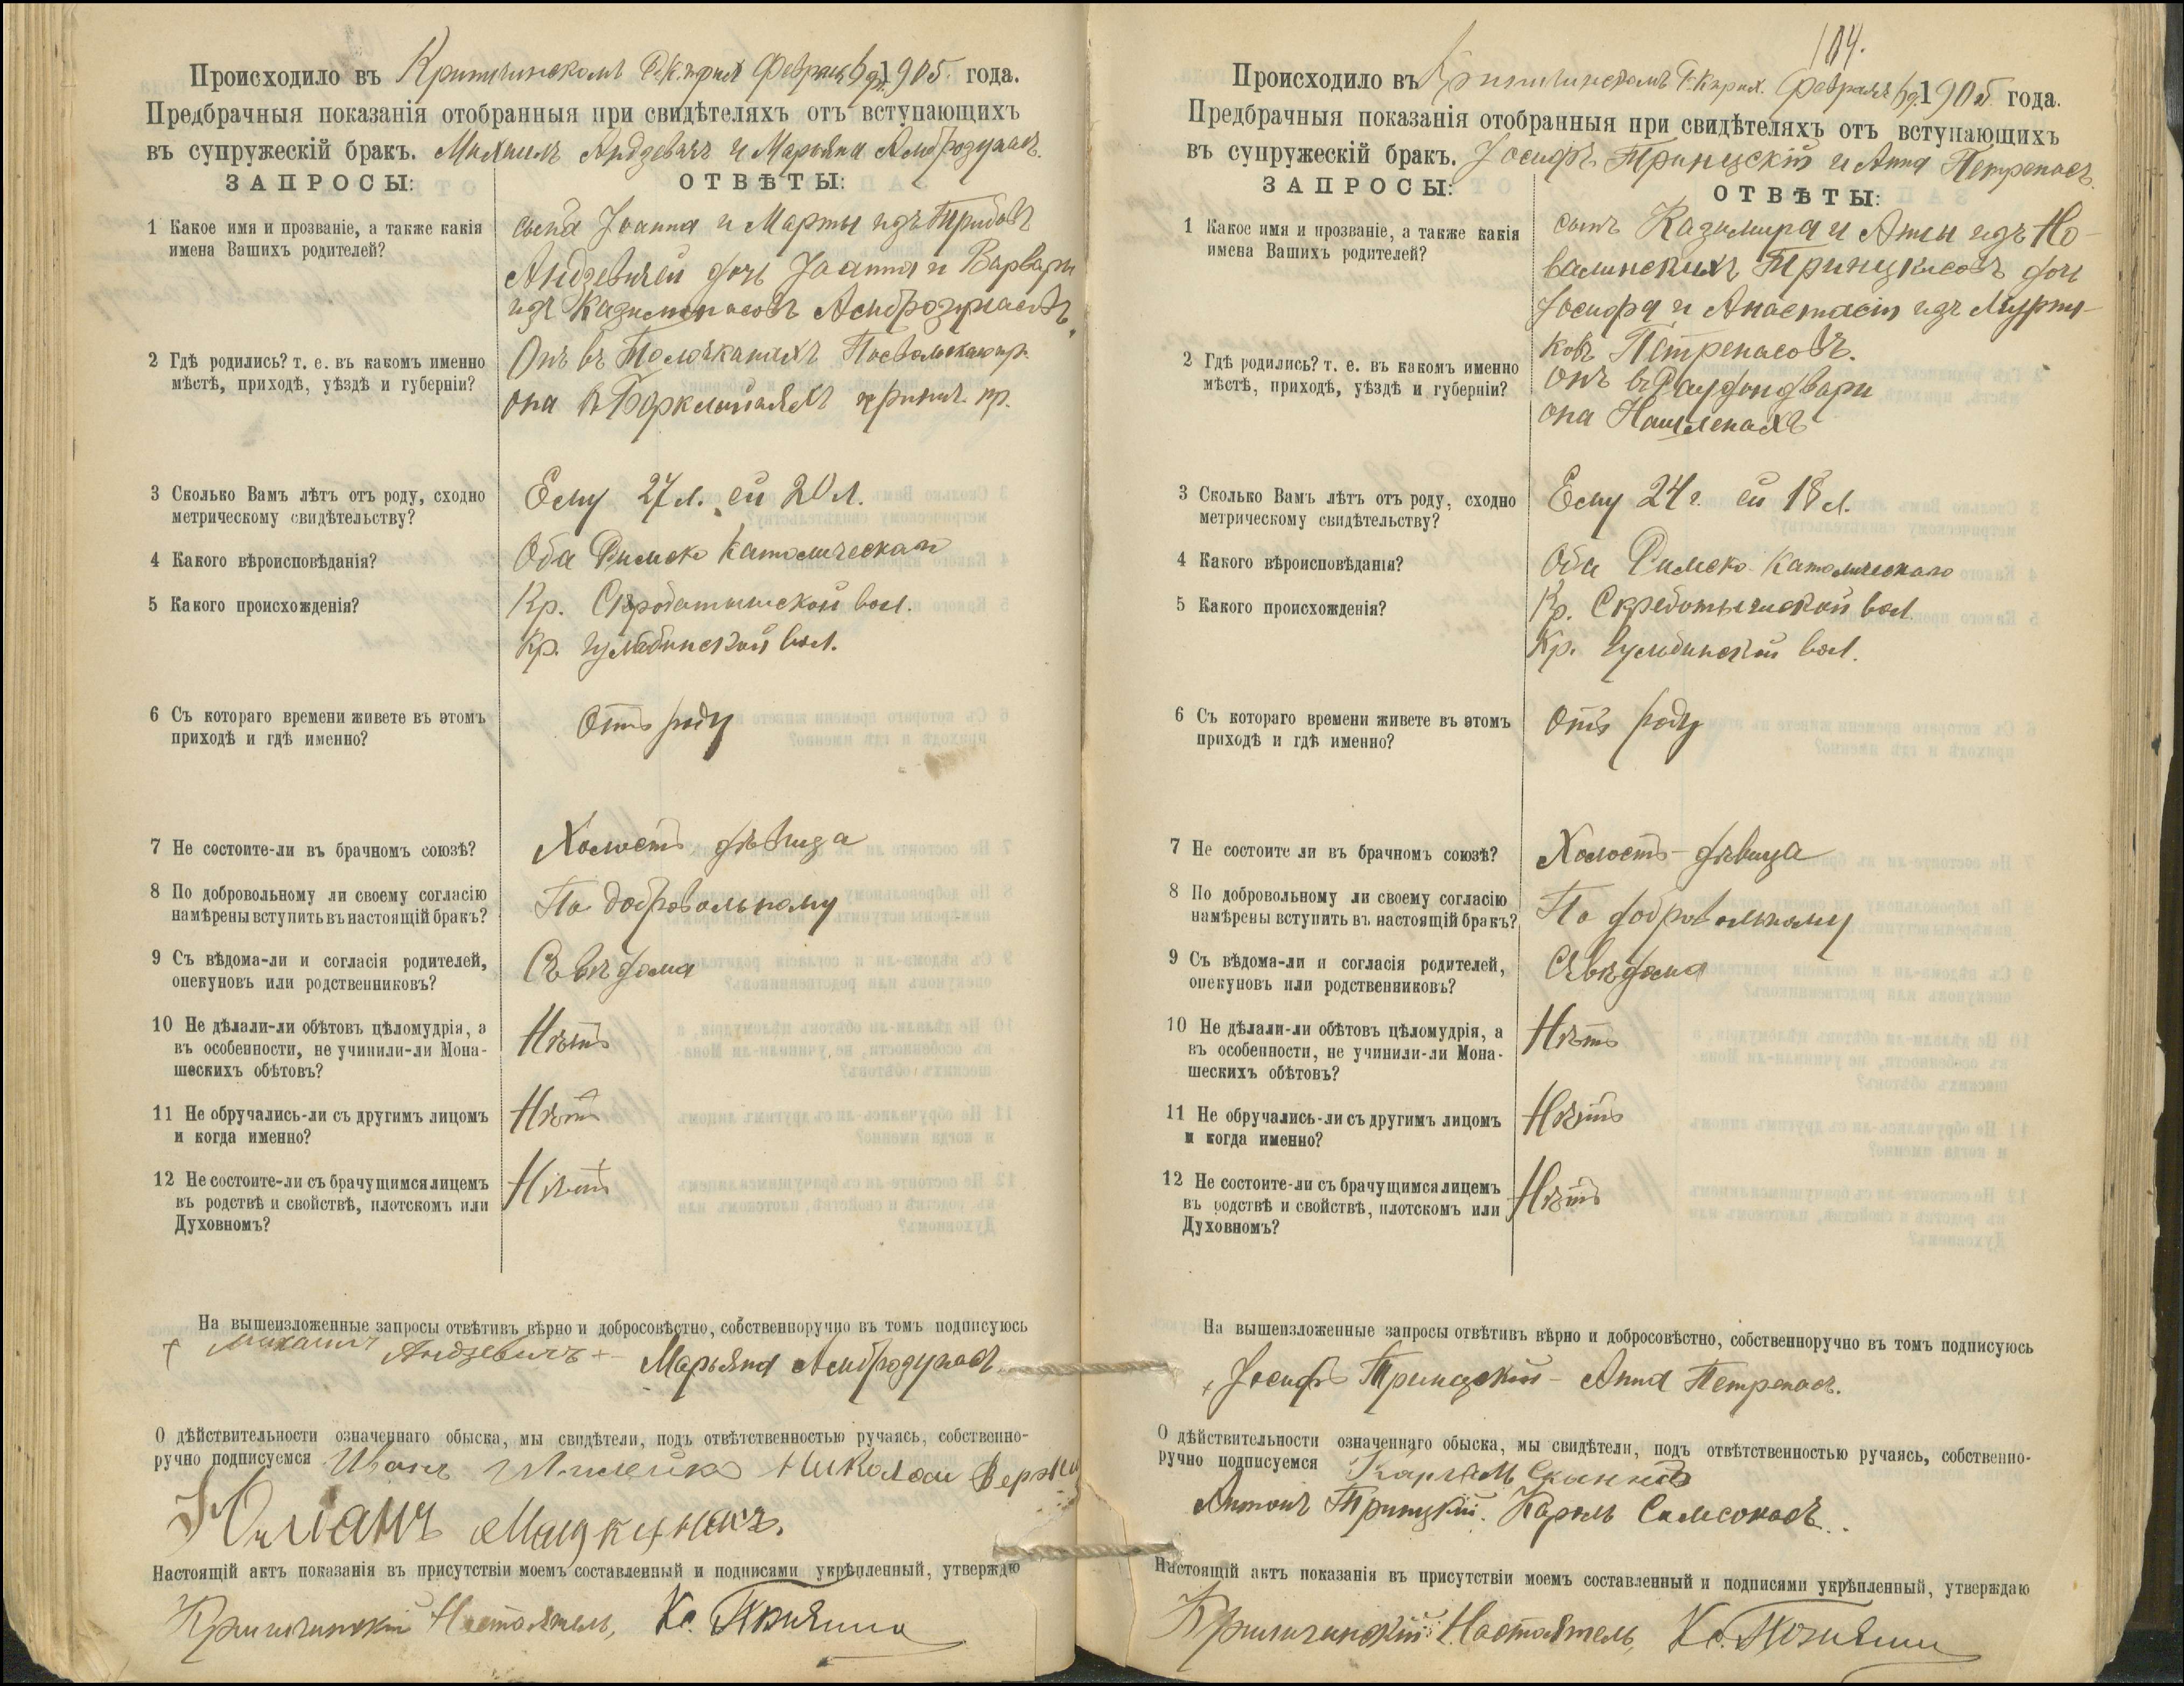 Происходило въ Кринчинскомъ Р. К. прих Февраля 6 дн. 1905 года.
Предбрачныя показанія отобранныя при свидѣтеляхъ отъ вступающихъ
въ супружескій бракъ. Михаилъ Андзевичъ и Марьяна Амброзунасъ.
ЗАПРОСЫ: ОТВѢТЫ:
1 Какое имя и прозваніе, а также какія
имена Вашихъ родителей?
сына Іоанна и Марты изъ
Андзевичей дочь Іоанна и Варвары
изъ Амброзунасовъ
2 Гдѣ родились? т. е. въ какомъ именно
мѣстѣ, приходѣ, уѣздѣ и губерніи?
Онъ въ пр.
она въ пр.
3 Сколько Вамъ лѣтъ отъ роду, сходно
метрическому свидѣтельству?
Ему 27 л. ей 20 л.
4 Какого вѣроисповѣданія?
Оба Римско Католическаго
5 Какого происхожденія?
Кр. вол.
Кр. Гульбинской вол.
6 Съ котораго времени живете въ этомъ
приходѣ и гдѣ именно?
Отъ роду
7 Не состоите-ли въ брачномъ союзѣ?
Холостъ дѣвица
8 По добровольному ли своему согласію
намѣрены вступить въ настоящій бракъ?
По добровольному
9 Съ вѣдома-ли и согласія родителей,
опекуновъ или родственниковъ?
Съ вѣдома
10 Не дѣлали-ли обѣтовъ цѣломудрія, а
въ особенности, не учинили-ли Мона-
шескихъ обѣтовъ?
Нѣтъ
11 Не обручались-ли съ другимъ лицомъ
и когда именно?
Нѣтъ
12 Не состоите-ли съ брачущимся лицемъ
въ родствѣ и свойствѣ, плотскомъ или
Духовномъ?
Нѣтъ
На вышеизложенные запросы отвѣтивъ вѣрно и добросовѣстно, собственноручно въ томъ подписуюсь
+ Михаилъ Андзевичъ + Марьяна Амброзунасъ
О дѣйствительности означеннаго обыска, мы свидѣтели, подъ отвѣтственностью ручаясь, собственно-
ручно подписуемся Иванъ Николай
Юліанъ
Настоящій актъ показанія въ присутствіи моемъ составленный и подписями укрѣпленный, утверждаю
Кринчинскій Настоятель, Кс.
104.
Происходило въ Кринчинскомъ Р. К. прих. Февраля 6 д. 1905 года.
Предбрачныя показанія отобранныя при свидѣтеляхъ отъ вступающихъ
въ супружескій бракъ. Іосифъ Тринцкій и Анна Петренасъ.
ЗАПРОСЫ: ОТВѢТЫ:
1 Какое имя и прозваніе, а также какія
имена Вашихъ родителей?
сынъ Казимира и Анны изъ Но-
валинскихъ дочь
Іосифа и Анастасіи изъ Мурни-
ковъ Петренасовъ.
2 Гдѣ родились? т. е. въ какомъ именно
мѣстѣ, приходѣ, уѣздѣ и губерніи?
онъ въ
она
3 Сколько Вамъ лѣтъ отъ роду, сходно
метрическому свидѣтельству?
Ему 24 г. ей 18 л.
4 Какого вѣроисповѣданія?
Оба Римско-Католическаго
5 Какого происхожденія?
Кр. вол.
Кр. Гульбинской вол.
6 Съ котораго времени живете въ этомъ
приходѣ и гдѣ именно?
Отъ роду
7 Не состоите ли въ брачномъ союзѣ?
Холостъ - дѣвица
8 По добровольному ли своему согласію
намѣрены вступить въ настоящій бракъ?
По добровольному
9 Съ вѣдома-ли и согласія родителей,
опекуновъ или родственниковъ?
Съ вѣдома
10 Не дѣлали-ли обѣтовъ цѣломудрія, а
въ особенности, не учинили-ли Мона-
шескихъ обѣтовъ?
Нѣтъ
11 Не обручались-ли съ другимъ лицомъ
и когда именно?
Нѣтъ
12 Не состоите-ли съ брачущимся лицемъ
въ родствѣ и свойствѣ, плотскомъ или
Духовномъ?
Нѣтъ
На вышеизложенные запросы отвѣтивъ вѣрно и добросовѣстно, собственноручно въ томъ подписуюсь
+ Іосифъ Тринцкій - Анна Петренасъ.
О дѣйствительности означеннаго обыска, мы свидѣтели, подъ отвѣтственностью ручаясь, собственно-
ручно подписуемся
Антонъ Тринцкій. Кароль Самсонасъ.
Настоящій актъ показанія въ присутствіи моемъ составленный и подписями укрѣпленный, утверждаю
Кринчинскій Настоятель, Кс.